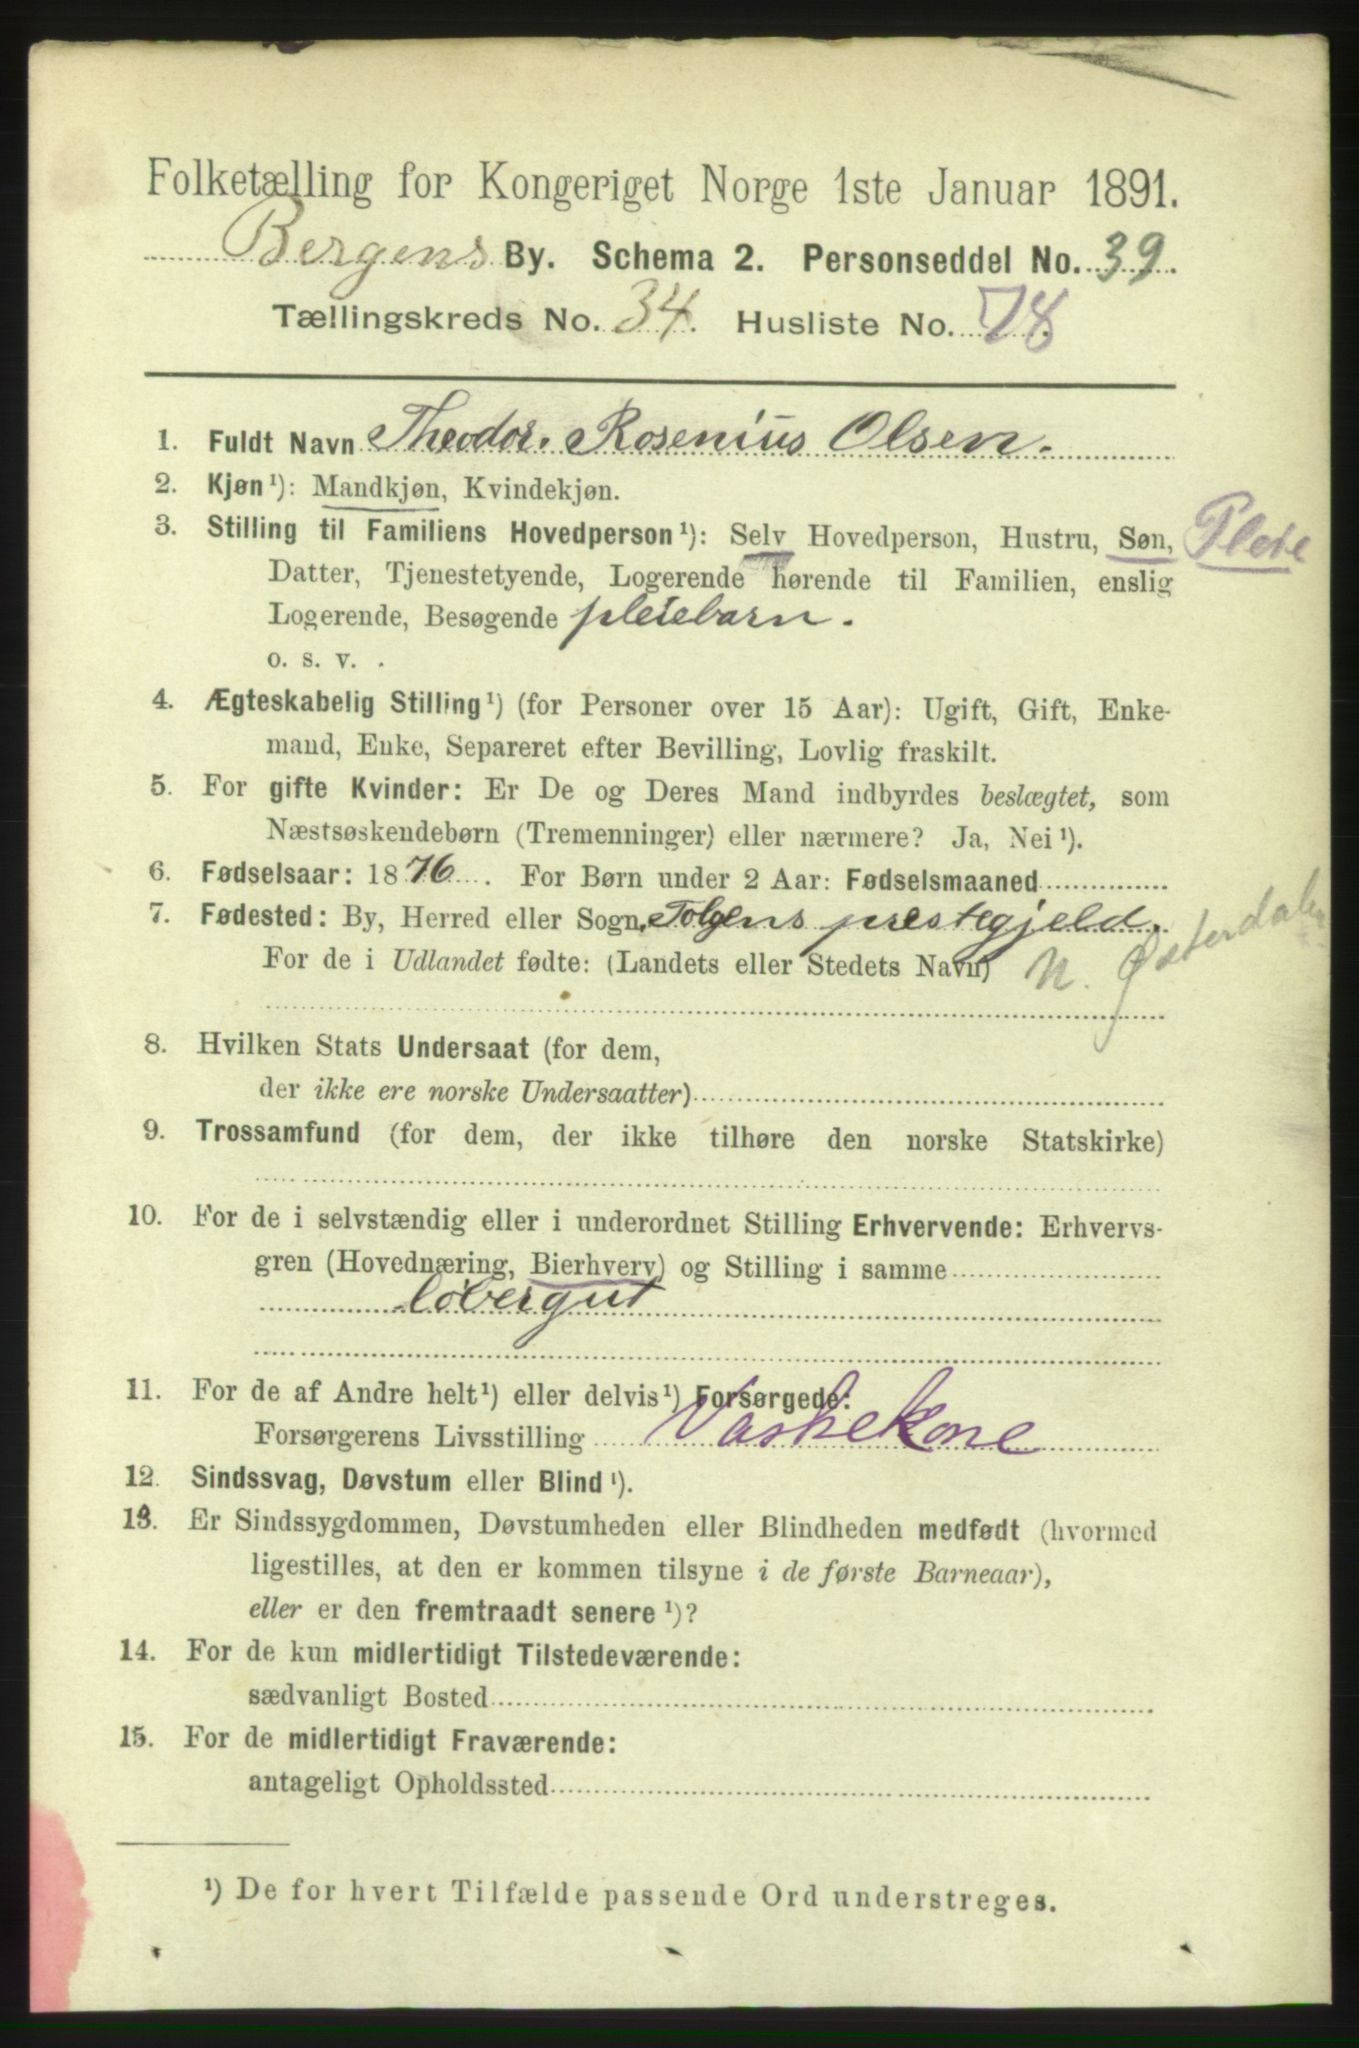 Folketælling for Kongeriget Norge 1ste Januar 1891.
Bergens By. Schema 2. Personseddel No. 39.
Tællingskreds No. 34. Husliste No. 78.
1. Fuldt Navn Theodor. Rosenius Olsen.
2. Kjøn ¹): Mandkjøn, Kvindekjøn.
3. Stilling til Familiens Hovedperson ¹): Selv Hovedperson, Hustru, Søn, Pleie
Datter, Tjenestetyende, Logerende hørende til Familien, enslig
Logerende, Besøgende pleiebarn.
o. s. v. .
4. Ægteskabelig Stilling ¹) (for Personer over 15 Aar): Ugift, Gift, Enke-
mand, Enke, Separeret efter Bevilling, Lovlig fraskilt.
5. For gifte Kvinder: Er De og Deres Mand indbyrdes beslægtet, som
Næstsøskendebørn (Tremenninger) eller nærmere? Ja, Nei ¹).
6. Fødselsaar: 1876. For Børn under 2 Aar: Fødselsmaaned
7. Fødested: By, Herred eller Sogn, Tolgens prestegjeld.
For de i Udlandet fødte: (Landets eller Stedets Navn) N. Østerdalen
8. Hvilken Stats Undersaat (for dem,
der ikke ere norske Undersaatter)
9. Trossamfund (for dem, der ikke tilhøre den norske Statskirke)
10. For de i selvstændig eller i underordnet Stilling Erhvervende: Erhvervs-
gren (Hovednæring, Bierhverv) og Stilling i samme
løbergut
11. For de af Andre helt ¹) eller delvis ¹) Forsørgede:
Forsørgerens Livsstilling Vaskekone
12. Sindssvag, Døvstum eller Blind ¹).
13. Er Sindssygdommen, Døvstumheden eller Blindheden medfødt (hvormed
ligestilles, at den er kommen tilsyne i de første Barneaar),
eller er den fremtraadt senere ¹)?
14. For de kun midlertidigt Tilstedeværende:
sædvanligt Bosted
15. For de midlertidigt Fraværende:
antageligt Opholdssted
¹) De for hvert Tilfælde passende Ord understreges.